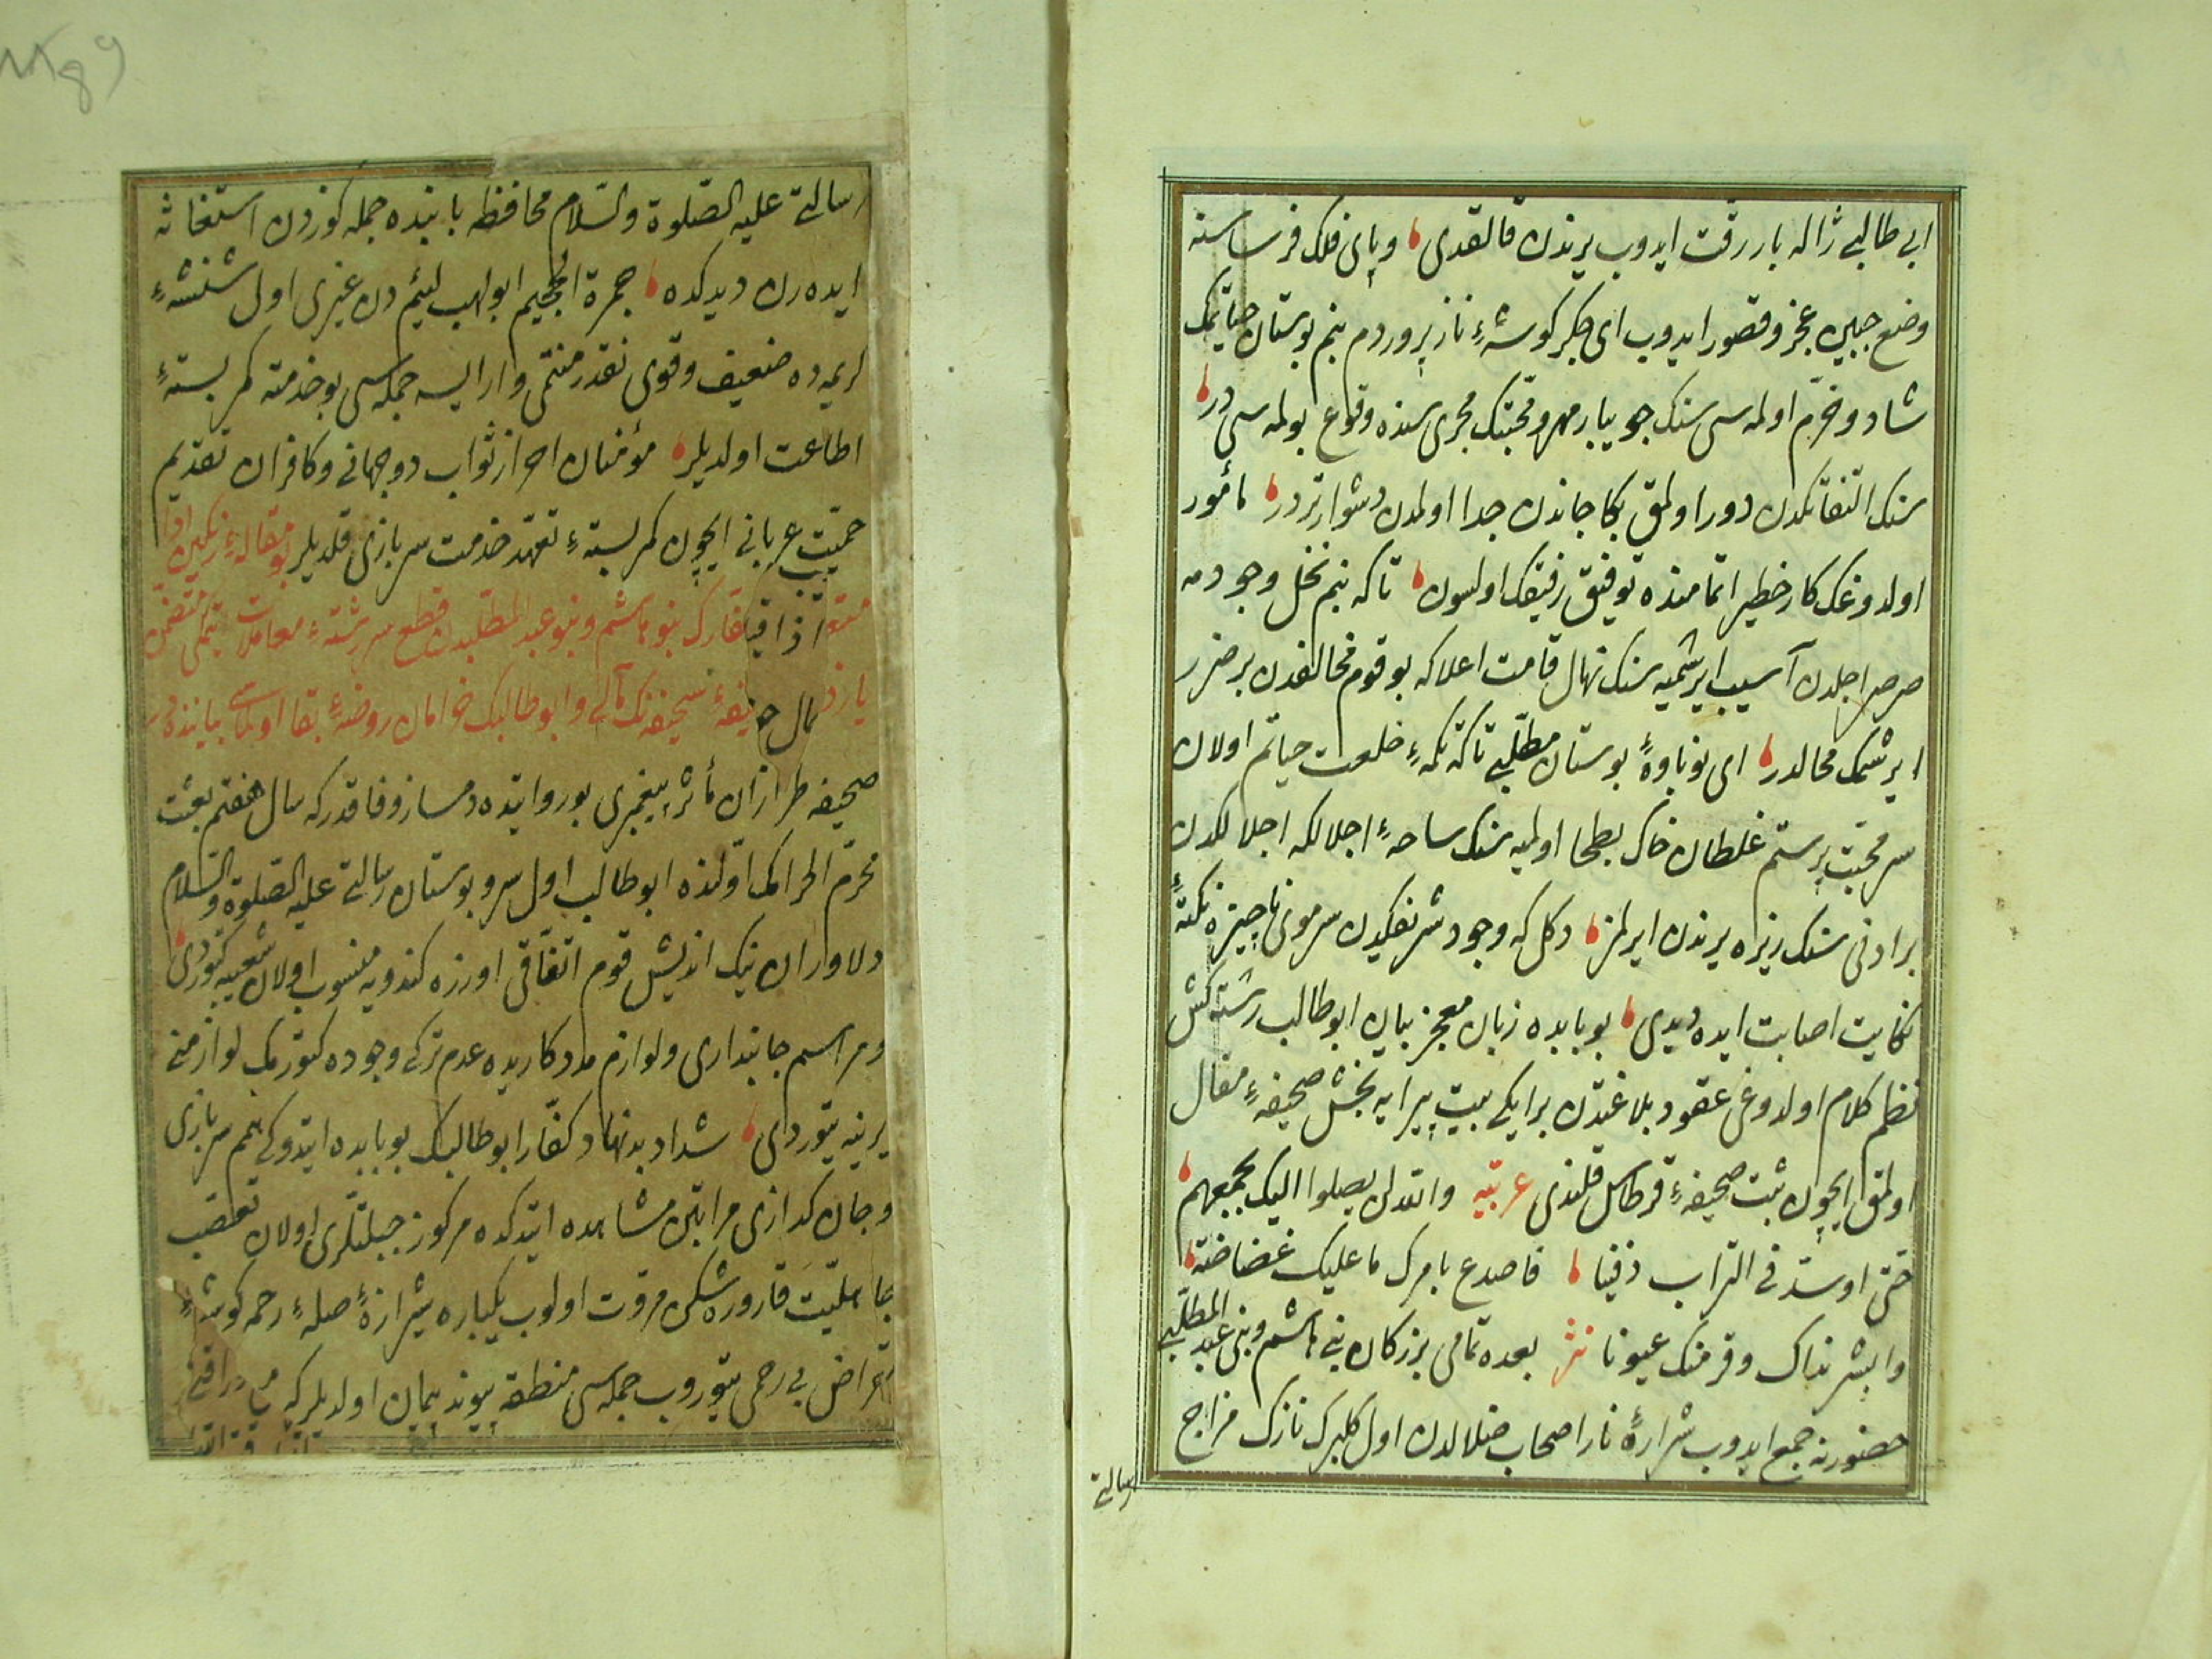 ابی طالبی ژاله بار رقت ایدوب یرندن قالقدی وپای فلک فرساسنه
وضع جبین عجز وقصور ایدوب ای جکر کوشهٔ ناز پروردم بنم بوستان حیاتمک
شاد وخرّم اولمه سی سنک جویبار مهر ومحبّتک مجری سنده وقوع بولمه سی در
سنک التفاتکدن دور اولمق بکا جاندن جدا اولمدن دشوارتردر مأمور
اولدوغک کار خطیر اتمامنده توفیق رفیقک اولسون تاکه بنم نخل وجودمه
صرصر اجلدن آسیب ایرشمیه سنک نهال قامت اعلاکه بو قوم مخالفدن بر ضرر
ایرشمک محالدر ای نوباوهٔ بوستان مطلّبی تاکه تکمهٔ خلعت حیاتم اولان
سر محبّت پرستم غلطان خاک بطحا اولمیه سنک ساحهٔ اجلالکه اجلالکدن
بر ادنی سنک ریزه یرندن ایرلمز دکل که وجود شریفکدن سر موی ناچیزه نکتهٔ
نکایت اصابت ایده دیدی بو بابده زبان معجز بیان ابو طالب رشته کش
نظم کلام اولدوغی عقود بلاغتدن بر ایکی بیت پیرایه بخش صحیفهٔ مقال
اولمق ایچون ثبت صحیفهٔ قرطاس قلندی عربیّه والله لن یصلوا الیک بجمعهم
حتی اوسّد فی التراب دفینا فاصدع بامرک ما علیک غضاضة
وابشر بذاک وقر منک عیونا نثر بعده تمامی بزرکان بنی هاشم وبنی عبد المطلّبی
حضورنه جمع ایدوب شرارهٔ نار اصحاب ضلالدن اول کلبرک نازک مزاج
رسالتی
رسالتی علیه الصّلوة والسّلام محافظه بابنده جمله کوزدن استغاثه
ایده رن دیدکده جمرة الجحیم ابو لهب لئیم دن غیری اول
کریمه ده ضعیف وقوی نقدر منتمی وار ایسه جمله سی بو خدمته کمر بستهٔ
اطاعت اولدیلر مؤمنان احراز ثواب دوجهانی وکافران تقدیم
حمیّت عربانی ایچون کمر بستهٔ تعهّد خدمت سربازی قلدیلر بو مقالهٔ رنکین ادا
کفّارک بنو هاشم وبنو عبد المطلّبدن قطع سر رشتهٔ معاملات متضمّن
صحیفه نک مآلی وابو طالبک خرامان روضهٔ بقا اولماسی بیاننده در
صحیفه طرازان مآثر پیغمبری بو روایتده دمساز وفاقدر که سال هفتم بعثت
محرّم الحرامک اوّلنده ابو طالب اول سرو بوستان رسالتی علیه الصّلوة والسّلام
دلاوران نیک اندیش قوم اتفاقی اوزره کندویه منسوب اولان شعبه کتوردی
ومراسم جانبداری ولوازم مددکاریده عدم ترکی وجوده کتورمک لوازمنی
یرینه یتوردی شداد بدنهاد کفّار ابو طالبک بو بابده ایتدوکی همم سربازی
وجان کدازی مراتبن مشاهده ایتدکده مرکوز جبلتلری اولان تعصّب
جاهلیّت قاروره شکن مروّت اولوب یکباره شیرازهٔ صلهٔ رحمه کوشهٔ
بی رحمی یتوروب جمله سی منطقه پیوند پیمان اولدیلر که